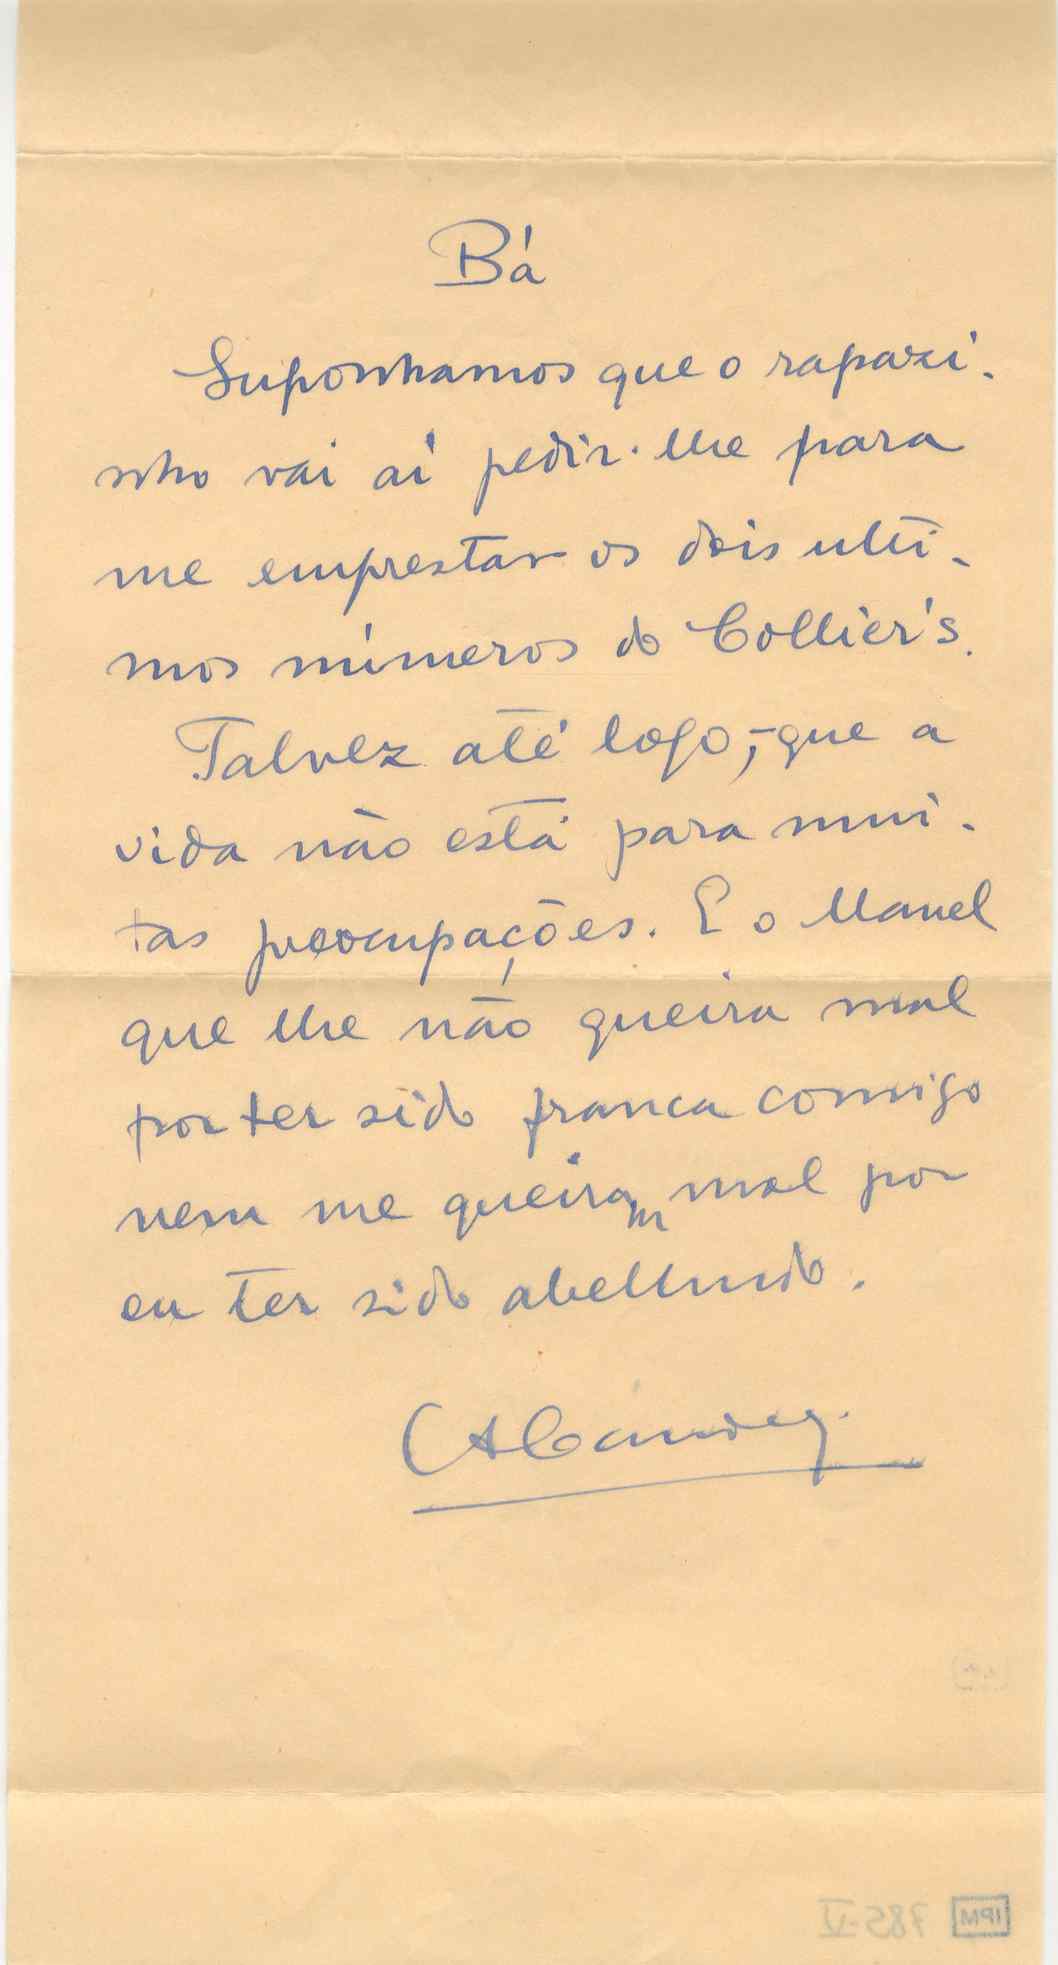 Bá
Suponhamos que o rapazi-
nho vai aí pedir-lhe para
me emprestar os dois ulti-
mos números do Collier's.
Talvez até logo, - que a
vida não está para mui-
tas preocupações. E o Manel
que lhe não queira mal
por ter sido franca comigo
nem me queiram mal por
eu ter sido abelhudo.
IPM 785-V